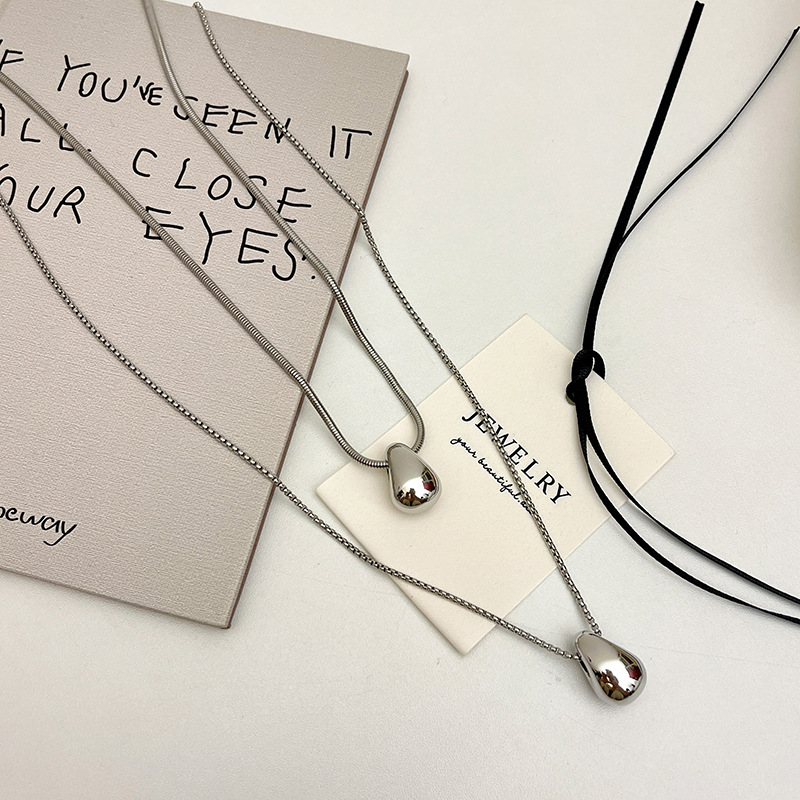 F YOU'VE SEEN IT
ALL CLOSE
OUR EYES.
beway
JEWELRY
your beautiful